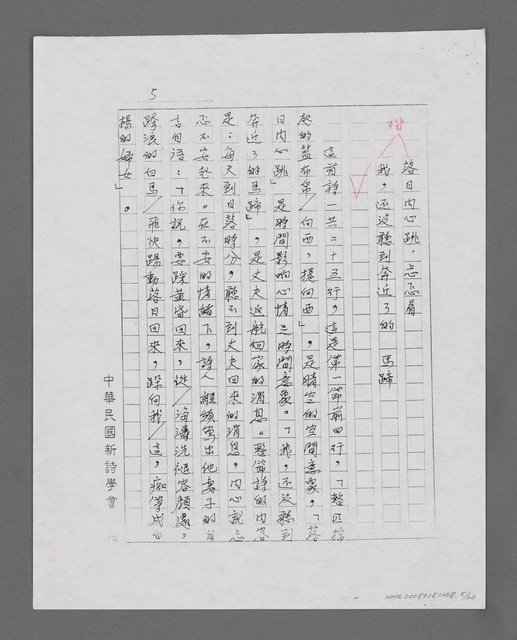 5
楷
落日內心跳，忐忑着
我，还沒聽到奔近了的 馬蹄
這首詩一共二十五行，這是第一節前四行，「整匹捲
起的藍布帛／向西，捲向西」，是晴空的空間意象，「落
日內心跳」是時間影响心情之時間意象。「我，还沒聽到
奔近了的馬蹄」，是丈夫返航回家的消息。整節詩的內容
是：每天到日落時分，聽不到丈夫回來的消息，內心就忐
忑不安起來。在不安的情緒下，詩人繼續寫出他妻子的自
言自語：「你說，要踩黃昏回來，從／海濤洗褪容顏濃，
踩浪的白馬／飛快踢動落日回來，踩向我／這，痴等成白
楊的婦女」。
中華民國新詩學會
NMTL20082181208_5/30